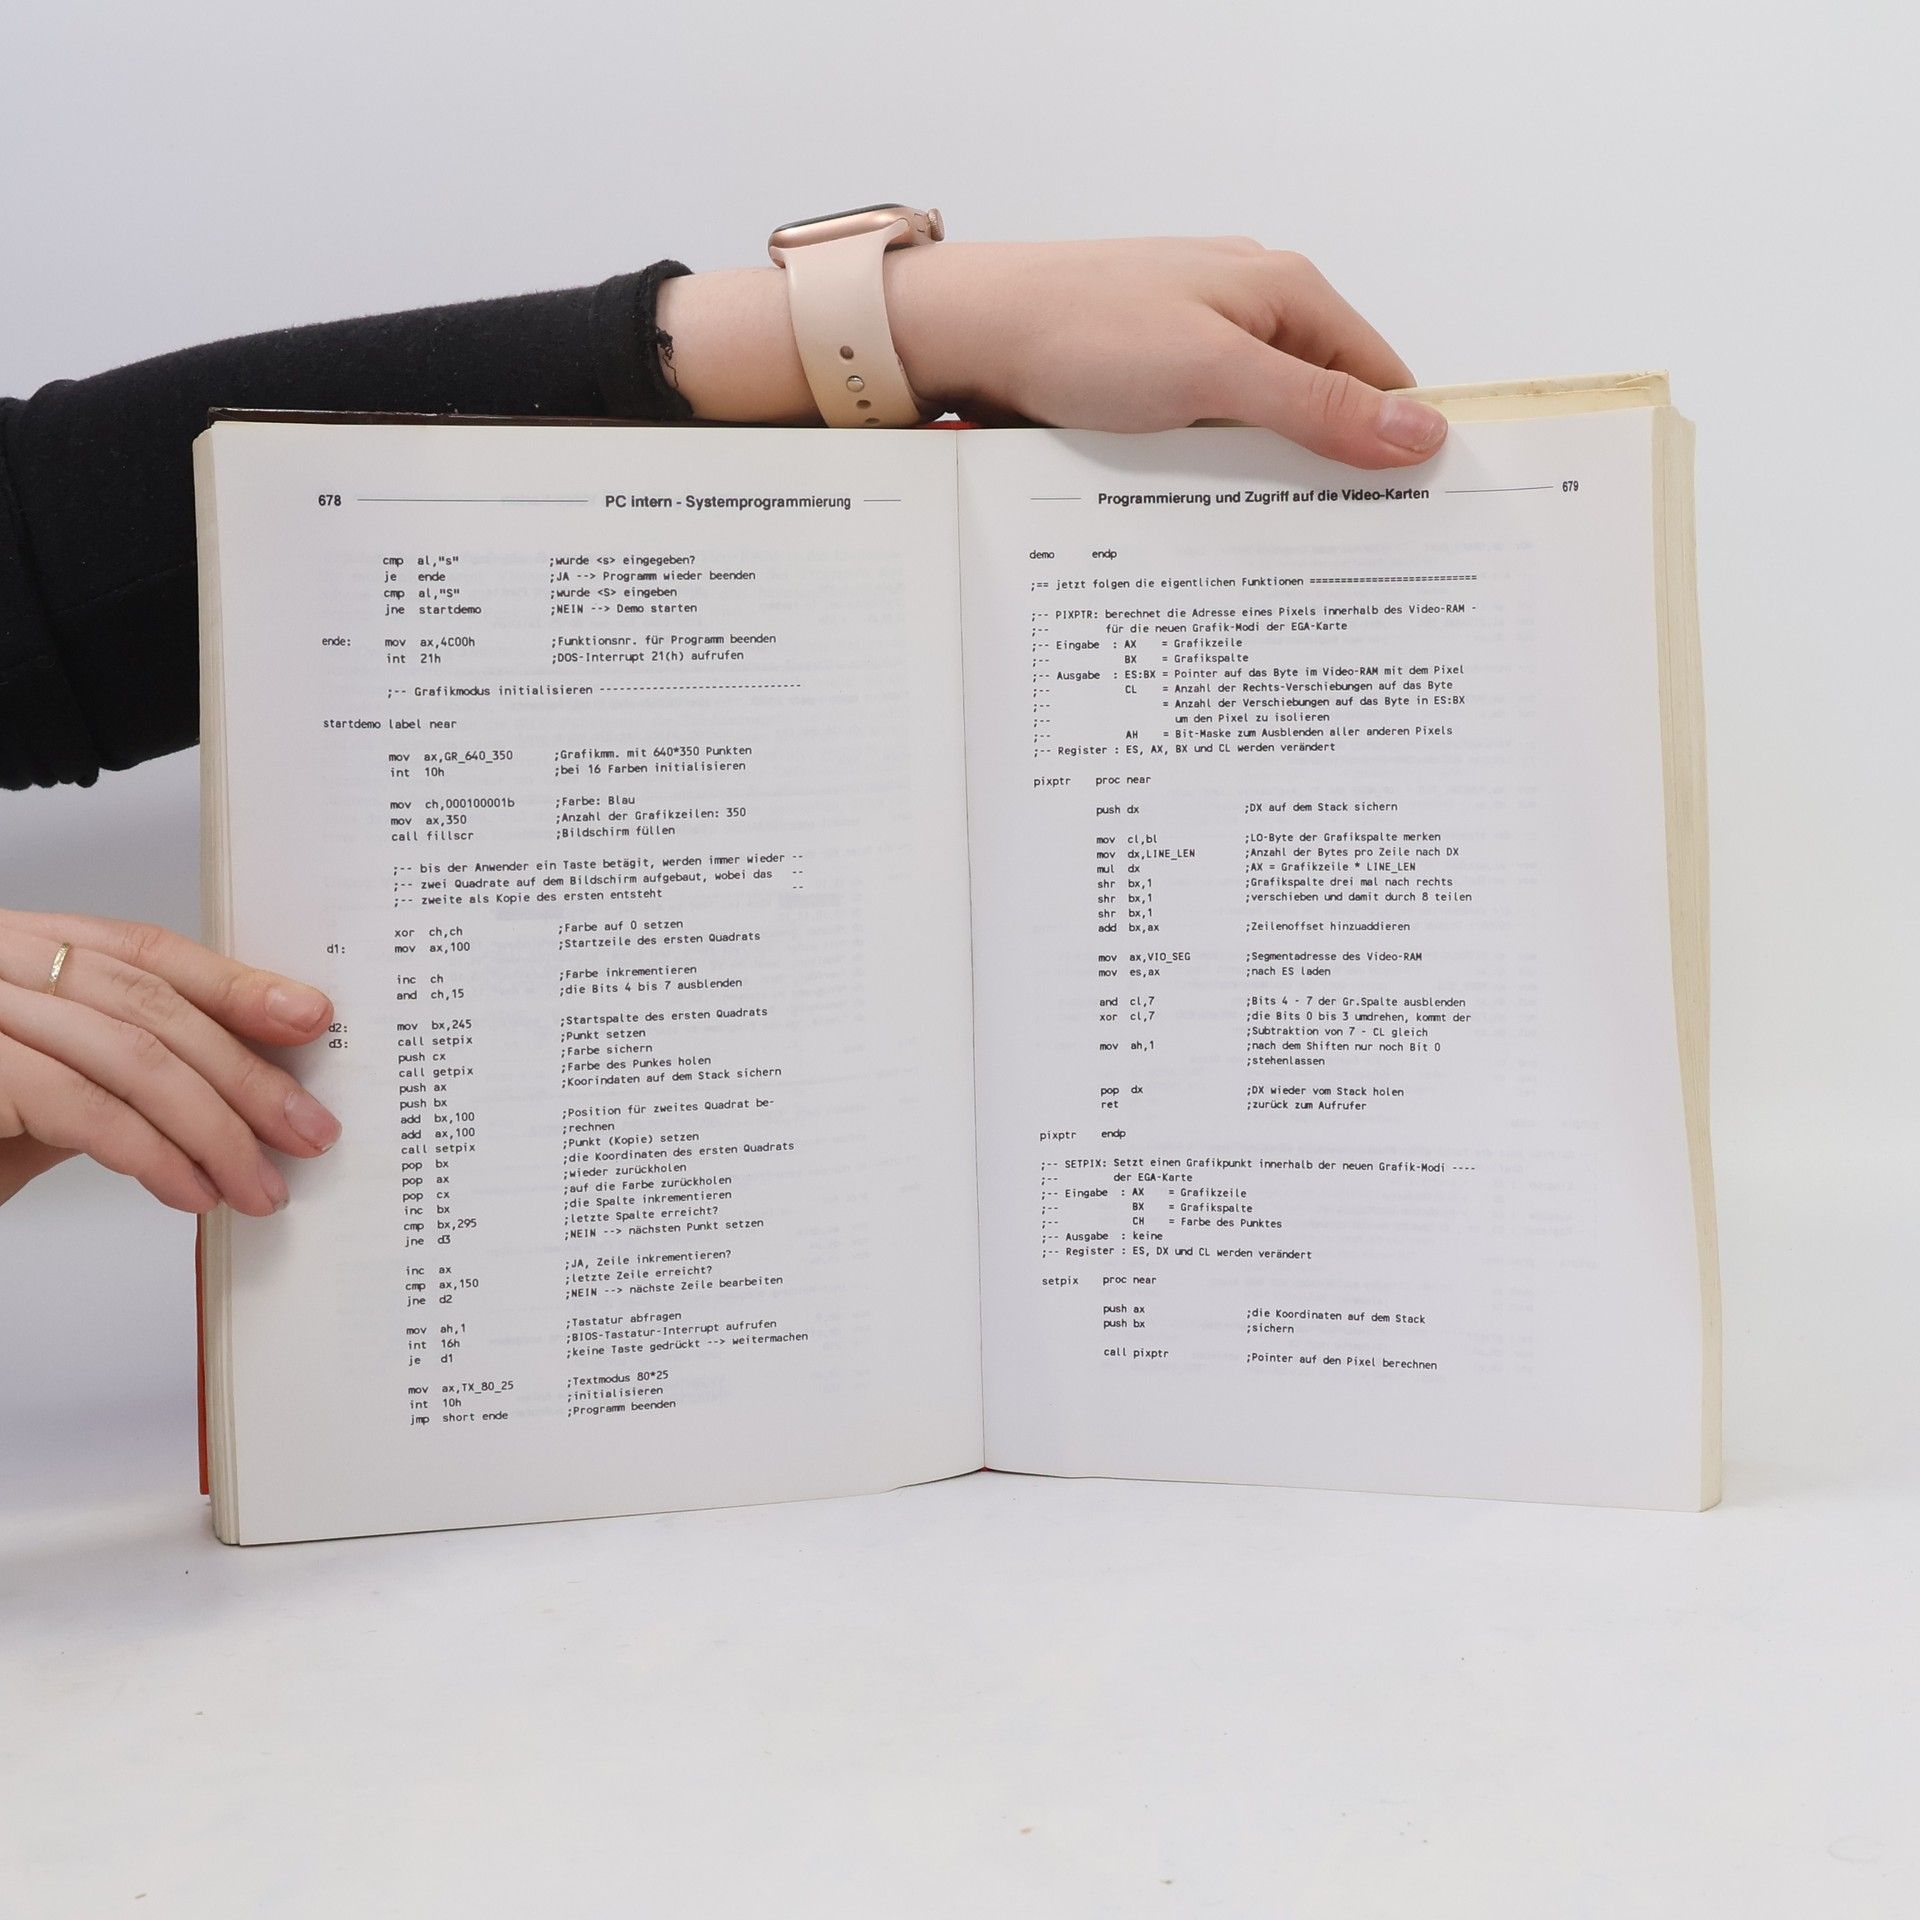 678 PC intern - Systemprogrammierung
cmp al,"s" ;wurde <s> eingegeben?
je ende ;JA --> Programm wieder beenden
cmp al,"S" ;wurde <S> eingeben
jne startdemo ;NEIN --> Demo starten
ende: mov ax,4C00h ;Funktionsnr. für Programm beenden
int 21h ;DOS-Interrupt 21(h) aufrufen
;-- Grafikmodus initialisieren ------------------------------
startdemo label near
mov ax,GR_640_350 ;Grafikmm. mit 640*350 Punkten
int 10h ;bei 16 Farben initialisieren
mov ch,000100001b ;Farbe: Blau
mov ax,350 ;Anzahl der Grafikzeilen: 350
call fillscr ;Bildschirm füllen
;-- bis der Anwender ein Taste betägit, werden immer wieder --
;-- zwei Quadrate auf dem Bildschirm aufgebaut, wobei das --
;-- zweite als Kopie des ersten entsteht --
xor ch,ch ;Farbe auf 0 setzen
d1: mov ax,100 ;Startzeile des ersten Quadrats
inc ch ;Farbe inkrementieren
and ch,15 ;die Bits 4 bis 7 ausblenden
d2: mov bx,245 ;Startspalte des ersten Quadrats
d3: call setpix ;Punkt setzen
push cx ;Farbe sichern
call getpix ;Farbe des Punkes holen
push ax ;Koorindaten auf dem Stack sichern
push bx
add bx,100 ;Position für zweites Quadrat be-
add ax,100 ;rechnen
call setpix ;Punkt (Kopie) setzen
pop bx ;die Koordinaten des ersten Quadrats
pop ax ;wieder zurückholen
pop cx ;auf die Farbe zurückholen
inc bx ;die Spalte inkrementieren
cmp bx,295 ;letzte Spalte erreicht?
jne d3 ;NEIN --> nächsten Punkt setzen
inc ax ;JA, Zeile inkrementieren?
cmp ax,150 ;letzte Zeile erreicht?
jne d2 ;NEIN --> nächste Zeile bearbeiten
mov ah,1 ;Tastatur abfragen
int 16h ;BIOS-Tastatur-Interrupt aufrufen
je d1 ;keine Taste gedrückt --> weitermachen
mov ax,TX_80_25 ;Textmodus 80*25
int 10h ;initialisieren
jmp short ende ;Programm beenden
Programmierung und Zugriff auf die Video-Karten 679
demo endp
;== jetzt folgen die eigentlichen Funktionen ===========================
;-- PIXPTR: berechnet die Adresse eines Pixels innerhalb des Video-RAM -
;-- für die neuen Grafik-Modi der EGA-Karte
;-- Eingabe : AX = Grafikzeile
;-- BX = Grafikspalte
;-- Ausgabe : ES:BX = Pointer auf das Byte im Video-RAM mit dem Pixel
;-- CL = Anzahl der Rechts-Verschiebungen auf das Byte
;-- = Anzahl der Verschiebungen auf das Byte in ES:BX
;-- um den Pixel zu isolieren
;-- AH = Bit-Maske zum Ausblenden aller anderen Pixels
;-- Register : ES, AX, BX und CL werden verändert
pixptr proc near
push dx ;DX auf dem Stack sichern
mov cl,bl ;LO-Byte der Grafikspalte merken
mov dx,LINE_LEN ;Anzahl der Bytes pro Zeile nach DX
mul dx ;AX = Grafikzeile * LINE_LEN
shr bx,1 ;Grafikspalte drei mal nach rechts
shr bx,1 ;verschieben und damit durch 8 teilen
shr bx,1
add bx,ax ;Zeilenoffset hinzuaddieren
mov ax,VIO_SEG ;Segmentadresse des Video-RAM
mov es,ax ;nach ES laden
and cl,7 ;Bits 4 - 7 der Gr.Spalte ausblenden
xor cl,7 ;die Bits 0 bis 3 umdrehen, kommt der
;Subtraktion von 7 - CL gleich
mov ah,1 ;nach dem Shiften nur noch Bit 0
;stehenlassen
pop dx ;DX wieder vom Stack holen
ret ;zurück zum Aufrufer
pixptr endp
;-- SETPIX: Setzt einen Grafikpunkt innerhalb der neuen Grafik-Modi ----
;-- der EGA-Karte
;-- Eingabe : AX = Grafikzeile
;-- BX = Grafikspalte
;-- CH = Farbe des Punktes
;-- Ausgabe : keine
;-- Register : ES, DX und CL werden verändert
setpix proc near
push ax ;die Koordinaten auf dem Stack
push bx ;sichern
call pixptr ;Pointer auf den Pixel berechnen